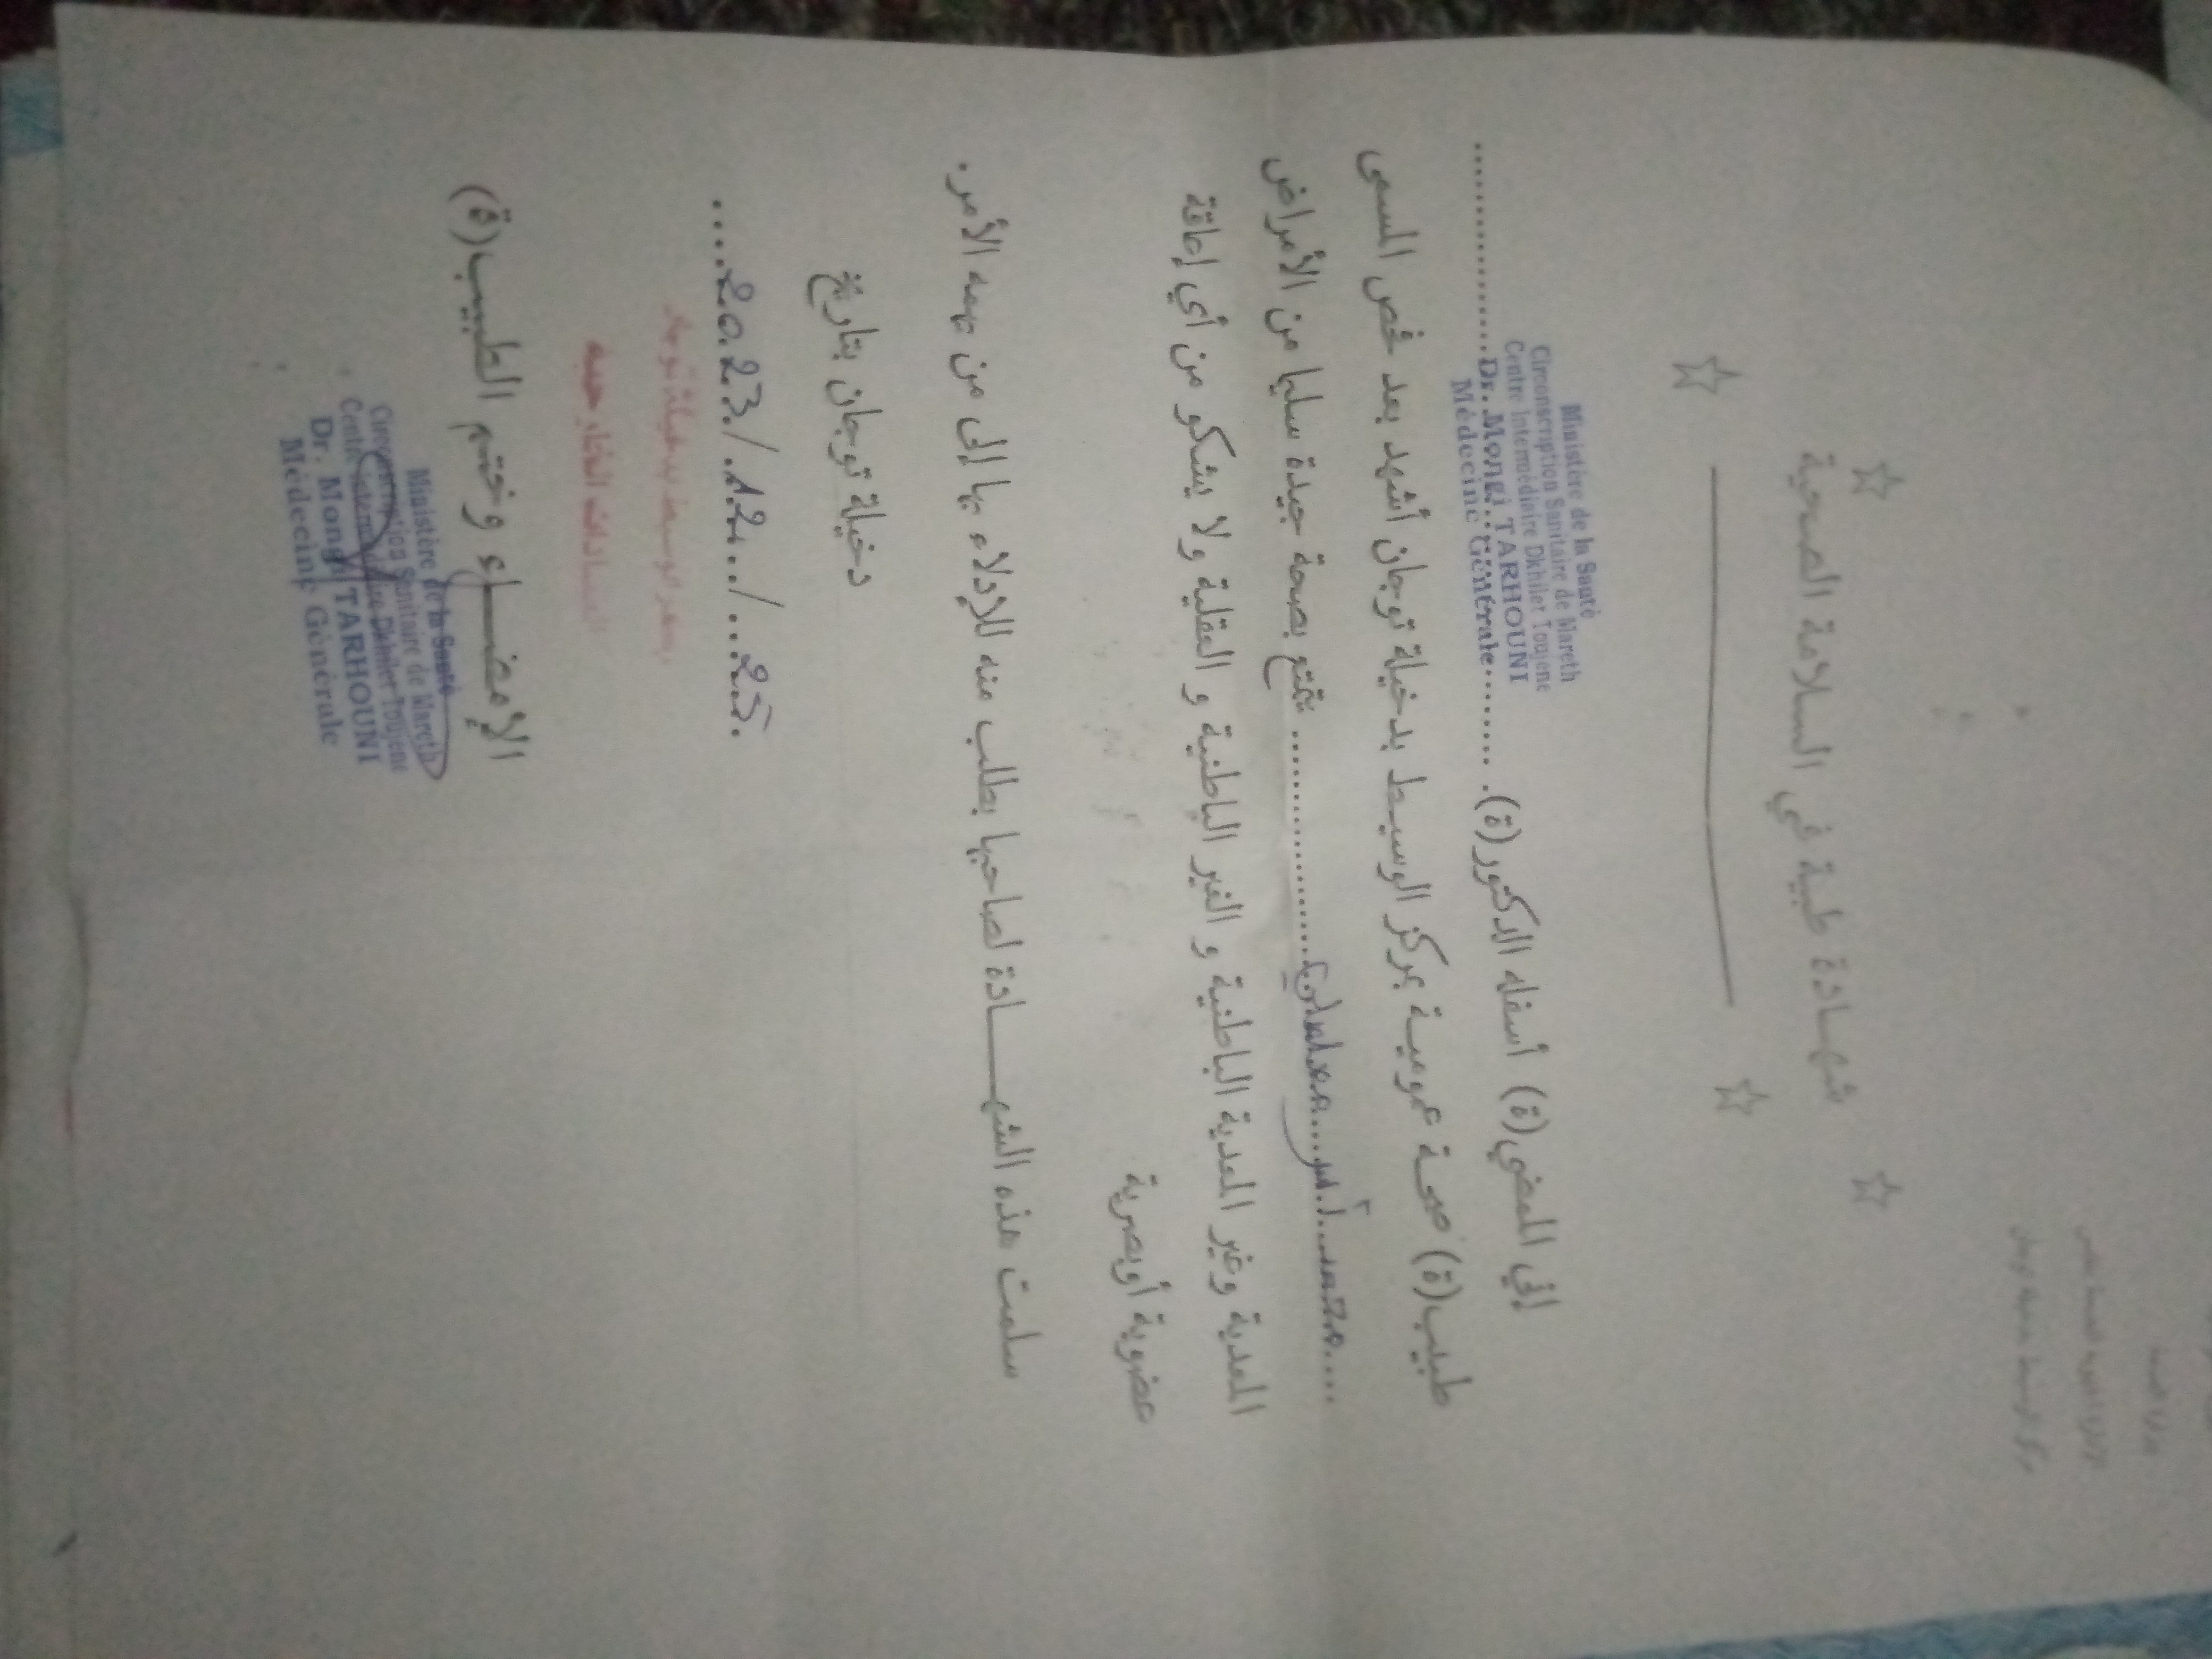 وزارة الصحة
شهادة طبية في السلامة الصحية
Ministère de la Santé
Circonscription Sanitaire de Mareth
Centre Intermédiaire Dkhilet Toujene
Dr. Mongi TARHOUNI
Médecine Générale
إني الممضي(ة) أسفله الدكتور(ة). ....................
طبيب(ة) صحة عمومية بمركز الوسيط بدخيلة توجان أشهد بعد فحص المسمى
....محمد..... يتمتع بصحة جيدة سليما من الأمراض
المعدية وغير المعدية الباطنية و الغير الباطنية و العقلية ولا يشكو من أي إعاقة
عضوية أوبصرية
سلمت هذه الشهـــــادة لصاحبها بطلب منه للإدلاء بها إلى من يهمه الأمر.
دخيلة توجان بتاريخ
....2023/.12../..25.
العيادات الخارجية
الإمضـــاء وختم الطبيب(ة)
Ministère de la Santé
Circonscription Sanitaire de Mareth
Centre Intermédiaire Dkhilet Toujene
Dr. Mongi TARHOUNI
Médecine Générale